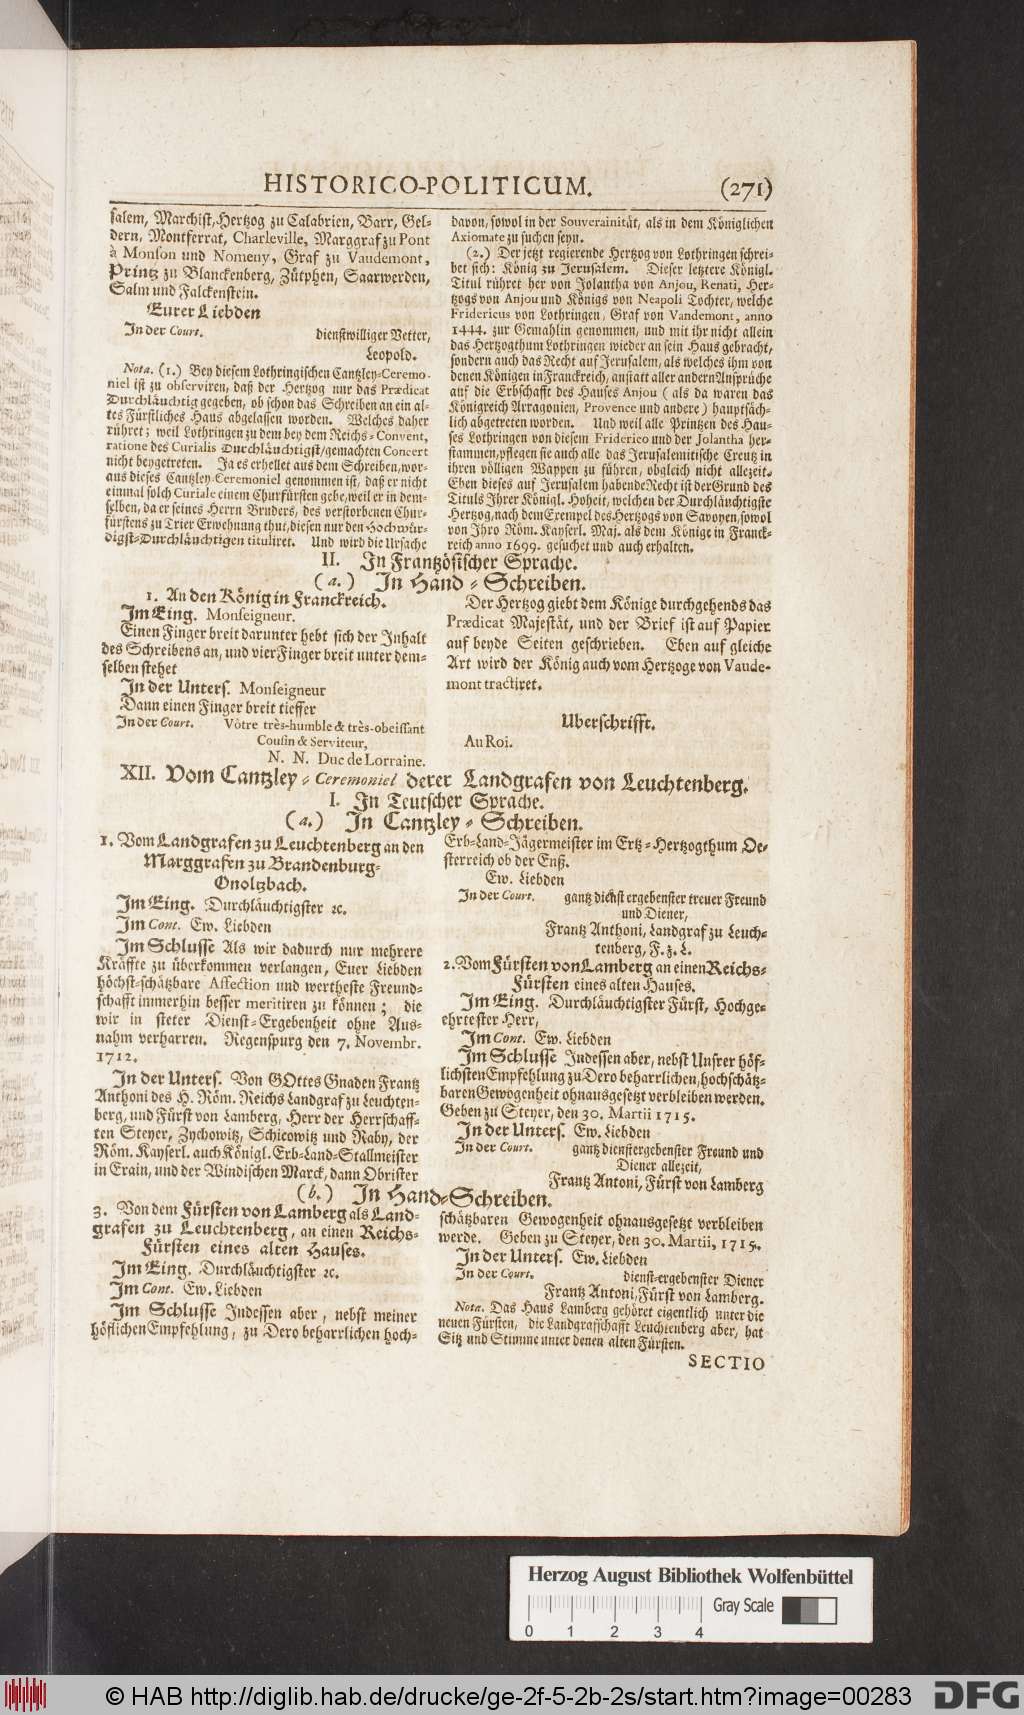 HISTORICO-POLITICUM. (271)
salem, Marchist, Hertzog zu Calabrien, Barr, Gel-
dern, Montferrat, Charleville, Marggraf zu Pont
à Monson und Nomeny, Graf zu Vaudemont,
Printz zu Blanckenberg, Zütphen, Saarwerden,
Salm und Falckenstein.
Eurer Liebden
In der Court. dienstwilliger Vetter,
Leopold.
Nota. (1.) Bey diesem Lothringischen Cantzley-Ceremo-
niel ist zu observiren, daß der Hertzog nur das Prædicat
Durchläuchtig gegeben, ob schon das Schreiben an ein al-
tes Fürstliches Haus abgelassen worden. Welches daher
rühret; weil Lothringen zu dem bey dem Reichs-Convent,
ratione des Curialis Durchläuchtigst/ gemachten Concert
nicht beygetreten. Ja es erhellet aus dem Schreiben, wor-
aus dieses Cantzley-Ceremoniel genommen ist, daß er nicht
einmal solch Curiale einem Churfürsten gebe, weil er in dem-
selben, da er seines Herrn Bruders, des verstorbenen Chur-
fürstens zu Trier Erwehnung thut, diesen nur den Hochwür-
digst-Durchläuchtigen tituliret. Und wird die Ursache
davon, sowol in der Souverainität, als in dem Königlichen
Axiomate zu suchen seyn.
(2.) Der jetzt regierende Hertzog von Lothringen schrei-
bet sich: König zu Jerusalem. Dieser letztere Königl.
Titul rühret her von Jolantha von Anjou, Renati, Her-
tzogs von Anjou und Königs von Neapoli Tochter, welche
Fridericus von Lothringen, Graf von Vandemont, anno
1444. zur Gemahlin genommen, und mit ihr nicht allein
das Hertzogthum Lothringen wieder an sein Haus gebracht,
sondern auch das Recht auf Jerusalem, als welches ihm von
denen Königen in Franckreich, anstatt aller andern Ansprüche
auf die Erbschafft des Hauses Anjou (als da waren das
Königreich Arragonien, Provence und andere) hauptsäch-
lich abgetreten worden. Und weil alle Printzen des Hau-
ses Lothringen von diesem Friderico und der Jolantha her-
stammen, pflegen sie auch alle das Jerusalemitische Creutz in
ihren völligen Wappen zu führen, obgleich nicht allezeit.
Eben dieses auf Jerusalem habende Recht ist der Grund des
Tituls Ihrer Königl. Hoheit, welchen der Durchläuchtigste
Hertzog, nach dem Exempel des Hertzogs von Savoyen, sowol
von Ihro Röm. Kayserl. Maj. als dem Könige in Franck-
reich anno 1699. gesuchet und auch erhalten.
II. In Frantzösischer Sprache.
(a.) In Hand-Schreiben.
1. An den König in Franckreich.
Im Eing. Monseigneur.
Einen Finger breit darunter hebt sich der Inhalt
des Schreibens an, und vier Finger breit unter dem-
selben stehet
In der Unters. Monseigneur
Dann einen Finger breit tieffer
In der Court. Vôtre très-humble & très-obeissant
Cousin & Serviteur,
N. N. Duc de Lorraine.
Der Hertzog giebt dem Könige durchgehends das
Prædicat Majestät, und der Brief ist auf Papier
auf beyde Seiten geschrieben. Eben auf gleiche
Art wird der König auch vom Hertzoge von Vaude-
mont tractiret.
Uberschrifft.
Au Roi.
XII. Vom Cantzley-Ceremoniel derer Landgrafen von Leuchtenberg.
I. In Teutscher Sprache.
(a.) In Cantzley-Schreiben.
1. Vom Landgrafen zu Leuchtenberg an den
Marggrafen zu Brandenburg-
Onoltzbach.
Im Eing. Durchläuchtigster ꝛc.
Im Cont. Ew. Liebden
Im Schlusse Als wir dadurch nur mehrere
Kräffte zu überkommen verlangen, Euer Liebden
höchst-schätzbare Affection und wertheste Freund-
schafft immerhin besser meritiren zu können; die
wir in steter Dienst-Ergebenheit ohne Aus-
nahm verharren. Regenspurg den 7. Novembr.
1712.
In der Unters. Von GOttes Gnaden Frantz
Anthoni des H. Röm. Reichs Landgraf zu Leuchten-
berg, und Fürst von Lamberg, Herr der Herrschaff-
ten Steyer, Zychowitz, Schicowitz und Raby, der
Röm. Kayserl. auch Königl. Erb-Land-Stallmeister
in Crain, und der Windischen Marck, dann Obrister
Erb-Land-Jägermeister im Ertz-Hertzogthum Oe-
sterreich ob der Enß.
Ew. Liebden
In der Court. gantz dienst ergebenster treuer Freund
und Diener,
Frantz Anthoni, Landgraf zu Leuch-
tenberg, F. z. L.
2. Vom Fürsten von Lamberg an einen Reichs-
Fürsten eines alten Hauses.
Im Eing. Durchläuchtigster Fürst, Hochge-
ehrtester Herr,
Im Cont. Ew. Liebden
Im Schlusse Indessen aber, nebst Unsrer höf-
lichsten Empfehlung zu Dero beharrlichen, hochschätz-
baren Gewogenheit ohnausgesetzt verbleiben werden.
Geben zu Steyer, den 30. Martii 1715.
In der Unters. Ew. Liebden
In der Court. gantz dienstergebenster Freund und
Diener allezeit,
Frantz Antoni, Fürst von Lamberg
(b.) In Hand-Schreiben.
3. Von dem Fürsten von Lamberg als Land-
grafen zu Leuchtenberg, an einen Reichs-
Fürsten eines alten Hauses.
Im Eing. Durchläuchtigster ꝛc.
Im Cont. Ew. Liebden
Im Schlusse Indessen aber, nebst meiner
höflichen Empfehlung, zu Dero beharrlichen hoch-
schätzbaren Gewogenheit ohnausgesetzt verbleiben
werde. Geben zu Steyer, den 30. Martii, 1715.
In der Unters. Ew. Liebden
In der Court. dienst-ergebenster Diener
Frantz Antoni, Fürst von Lamberg.
Nota. Das Haus Lamberg gehöret eigentlich unter die
neuen Fürsten, die Landgrafschafft Leuchtenberg aber, hat
Sitz und Stimme unter denen alten Fürsten.
SECTIO
Herzog August Bibliothek Wolfenbüttel
Gray Scale
0 1 2 3 4
© HAB http://diglib.hab.de/drucke/ge-2f-5-2b-2s/start.htm?image=00283 DFG